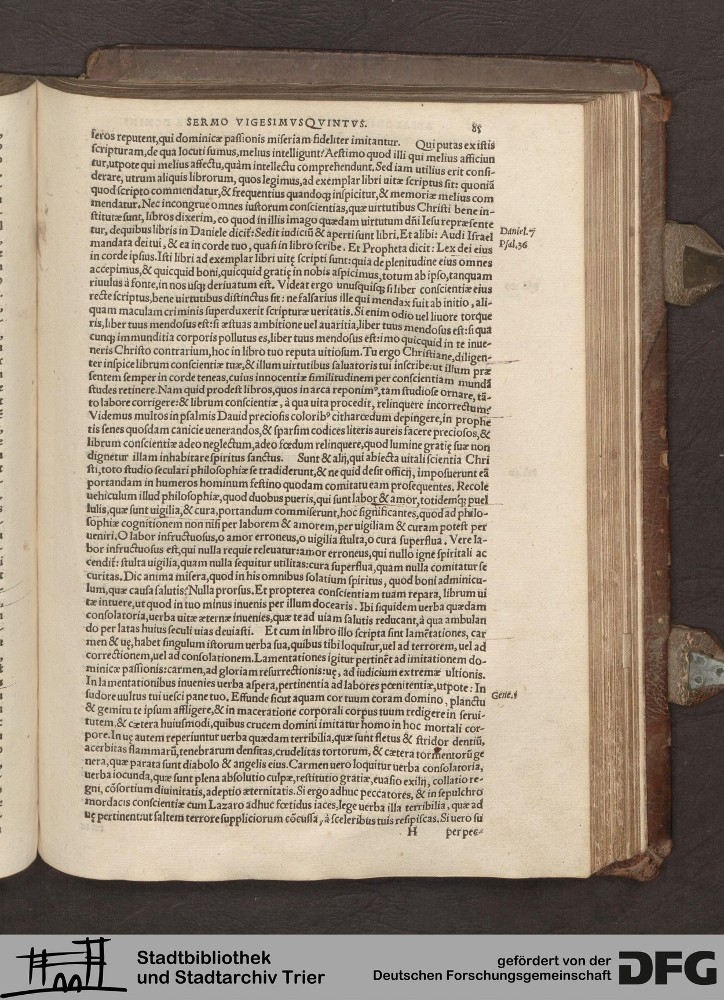 SERMO VIGESIMVSQVINTVS. 85
feros reputent, qui dominicæ passionis miseriam fideliter imitantur. Qui putas ex istis
scripturam, de qua locuti sumus, melius intelligunt? Aestimo quod illi qui melius afficiun
tur, utpote qui melius affectu, quàm intellectu comprehendunt. Sed iam utilius erit consi-
derare, utrum aliquis librorum, quos legimus, ad exemplar libri uitæ scriptus sit: quoniã
quod scripto commendatur, & frequentius quandoqꝫ inspicitur, & memoriæ melius com
mendatur. Nec incongrue omnes iustorum conscientias, quæ uirtutibus Christi bene in-
stitutæ sunt, libros dixerim, eo quod in illis imago quædam uirtutum dñi Iesu repræsente
tur, dequibus libris in Daniele dicit̃: Sedit iudiciũ & aperti sunt libri. Et alibi: Audi Israel
Daniel. 7
mandata dei tui, & ea in corde tuo, quasi in libro scribe. Et Propheta dicit: Lex dei eius
Psal. 36
in corde ipsius. Isti libri ad exemplar libri uitę scripti sunt: quia de plenitudine eius omnes
accepimus, & quicquid boni, quicquid gratię in nobis aspicimus, totum ab ipso, tanquam
riuulus à fonte, in nos usqꝫ deriuatum est. Videat ergo unusquisqꝫ si liber conscientiæ eius
recte scriptus, bene uirtutibus distinctus sit: ne falsarius ille qui mendax fuit ab initio, ali-
quam maculam criminis superduxerit scripturæ ueritatis. Si enim odio uel liuore torque
ris, liber tuus mendosus est: si æstuas ambitione uel auaritia, liber tuus mendosus est: si qua
cunqꝫ immunditia corporis pollutus es, liber tuus mendosus est: imo quicquid in te inue-
neris Christo contrarium, hoc in libro tuo reputa uitiosum. Tu ergo Christiane, diligen-
ter inspice librum conscientiæ tuæ, & illum uirtutibus saluatoris tui inscribe: ut illum præ
sentem semper in corde teneas, cuius innocentiæ similitudinem per conscientiam mundã
studes retinere. Nam quid prodest libros, quos in arca reponimꝰ, tam studiose ornare, tã-
to labore corrigere: & librum conscientiæ, à qua uita procedit, relinquere incorrectum?
Videmus multos in psalmis Dauid preciosis coloribꝰ citharœdum depingere, in prophe
tis senes quosdam canicie uenerandos, & sparsim codices literis aureis facere preciosos, &
librum conscientiæ adeo neglectum, adeo fœdum relinquere, quod lumine gratię suæ non
dignetur illam inhabitare spiritus sanctus. Sunt & alij, qui abiecta uitali scientia Chri
sti, toto studio seculari philosophiæ se tradiderunt, & ne quid desit officij, imposuerunt eã
portandam in humeros hominum festino quodam comitatu eam prosequentes. Recole
uehiculum illud philosophiæ, quod duobus pueris, qui sunt labor & amor, totidemqꝫ puel
lulis, quæ sunt uigilia, & cura, portandum commiserunt, hoc significantes, quod ad philo-
sophiæ cognitionem non nisi per laborem & amorem, per uigiliam & curam potest per
ueniri. O labor infructuosus, o amor erroneus, o uigilia stulta, o cura superflua. Vere la-
bor infructuosus est, qui nulla requie releuatur: amor erroneus, qui nullo igne spiritali ac
cendit̃: stulta uigilia, quam nulla sequitur utilitas: cura superflua, quam nulla comitatur se
curitas. Dic anima misera, quod in his omnibus solatium spiritus, quod boni adminicu-
lum, quæ causa salutis? Nulla prorsus. Et propterea conscientiam tuam repara, librum ui
tæ intuere, ut quod in tuo minus inuenis per illum docearis. Ibi siquidem uerba quædam
consolatoria, uerba uitæ æternæ inuenies, quæ te ad uiam salutis reducant, à qua ambulan
do per latas huius seculi uias deuiasti. Et cum in libro illo scripta sint lamẽtationes, car
men & uę, habet singulum istorum uerba sua, quibus tibi loquitur, uel ad terrorem, uel ad
correctionem, uel ad consolationem. Lamentationes igitur pertinẽt ad imitationem do-
minicæ passionis: carmen, ad gloriam resurrectionis: uę, ad iudicium extremæ ultionis.
In lamentationibus inuenies uerba aspera, pertinentia ad labores pœnitentiæ, utpote: In
sudore uultus tui uesci pane tuo. Effunde sicut aquam cor tuum coram domino, planctu
Gene. 3
& gemitu te ipsum afflige, & in maceratione corporali corpus tuum redige in serui-
tutem, & cætera huiusmodi, quibus crucem domini imitatur homo in hoc mortali cor-
pore. In uę autem reperiuntur uerba quædam terribilia, quæ sunt fletus & stridor dentiũ,
acerbitas flammarũ, tenebrarum densitas, crudelitas tortorum, & cætera tormentorũ ge
nera, quæ parata sunt diabolo & angelis eius. Carmen uero loquitur uerba consolatoria,
uerba iocunda, quæ sunt plena absolutio culpæ, restitutio gratiæ, euasio exilij, collatio re-
gni, cõsortium diuinitatis, adeptio æternitatis. Si ergo adhuc peccatores, & in sepulchro
mordacis conscientiæ cum Lazaro adhuc fœtidus iaces, lege uerba illa terribilia, quæ ad
uę pertinent: ut saltem terrore suppliciorum cõcussa, à sceleribus tuis resipiscas. Si uero su
H perpes-
Stadtbibliothek
und Stadtarchiv Trier
gefördert von der
Deutschen Forschungsgemeinschaft
DFG